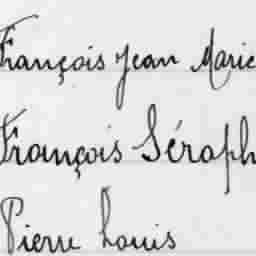 François Jean Marie
François Séraph
Pierre Louis